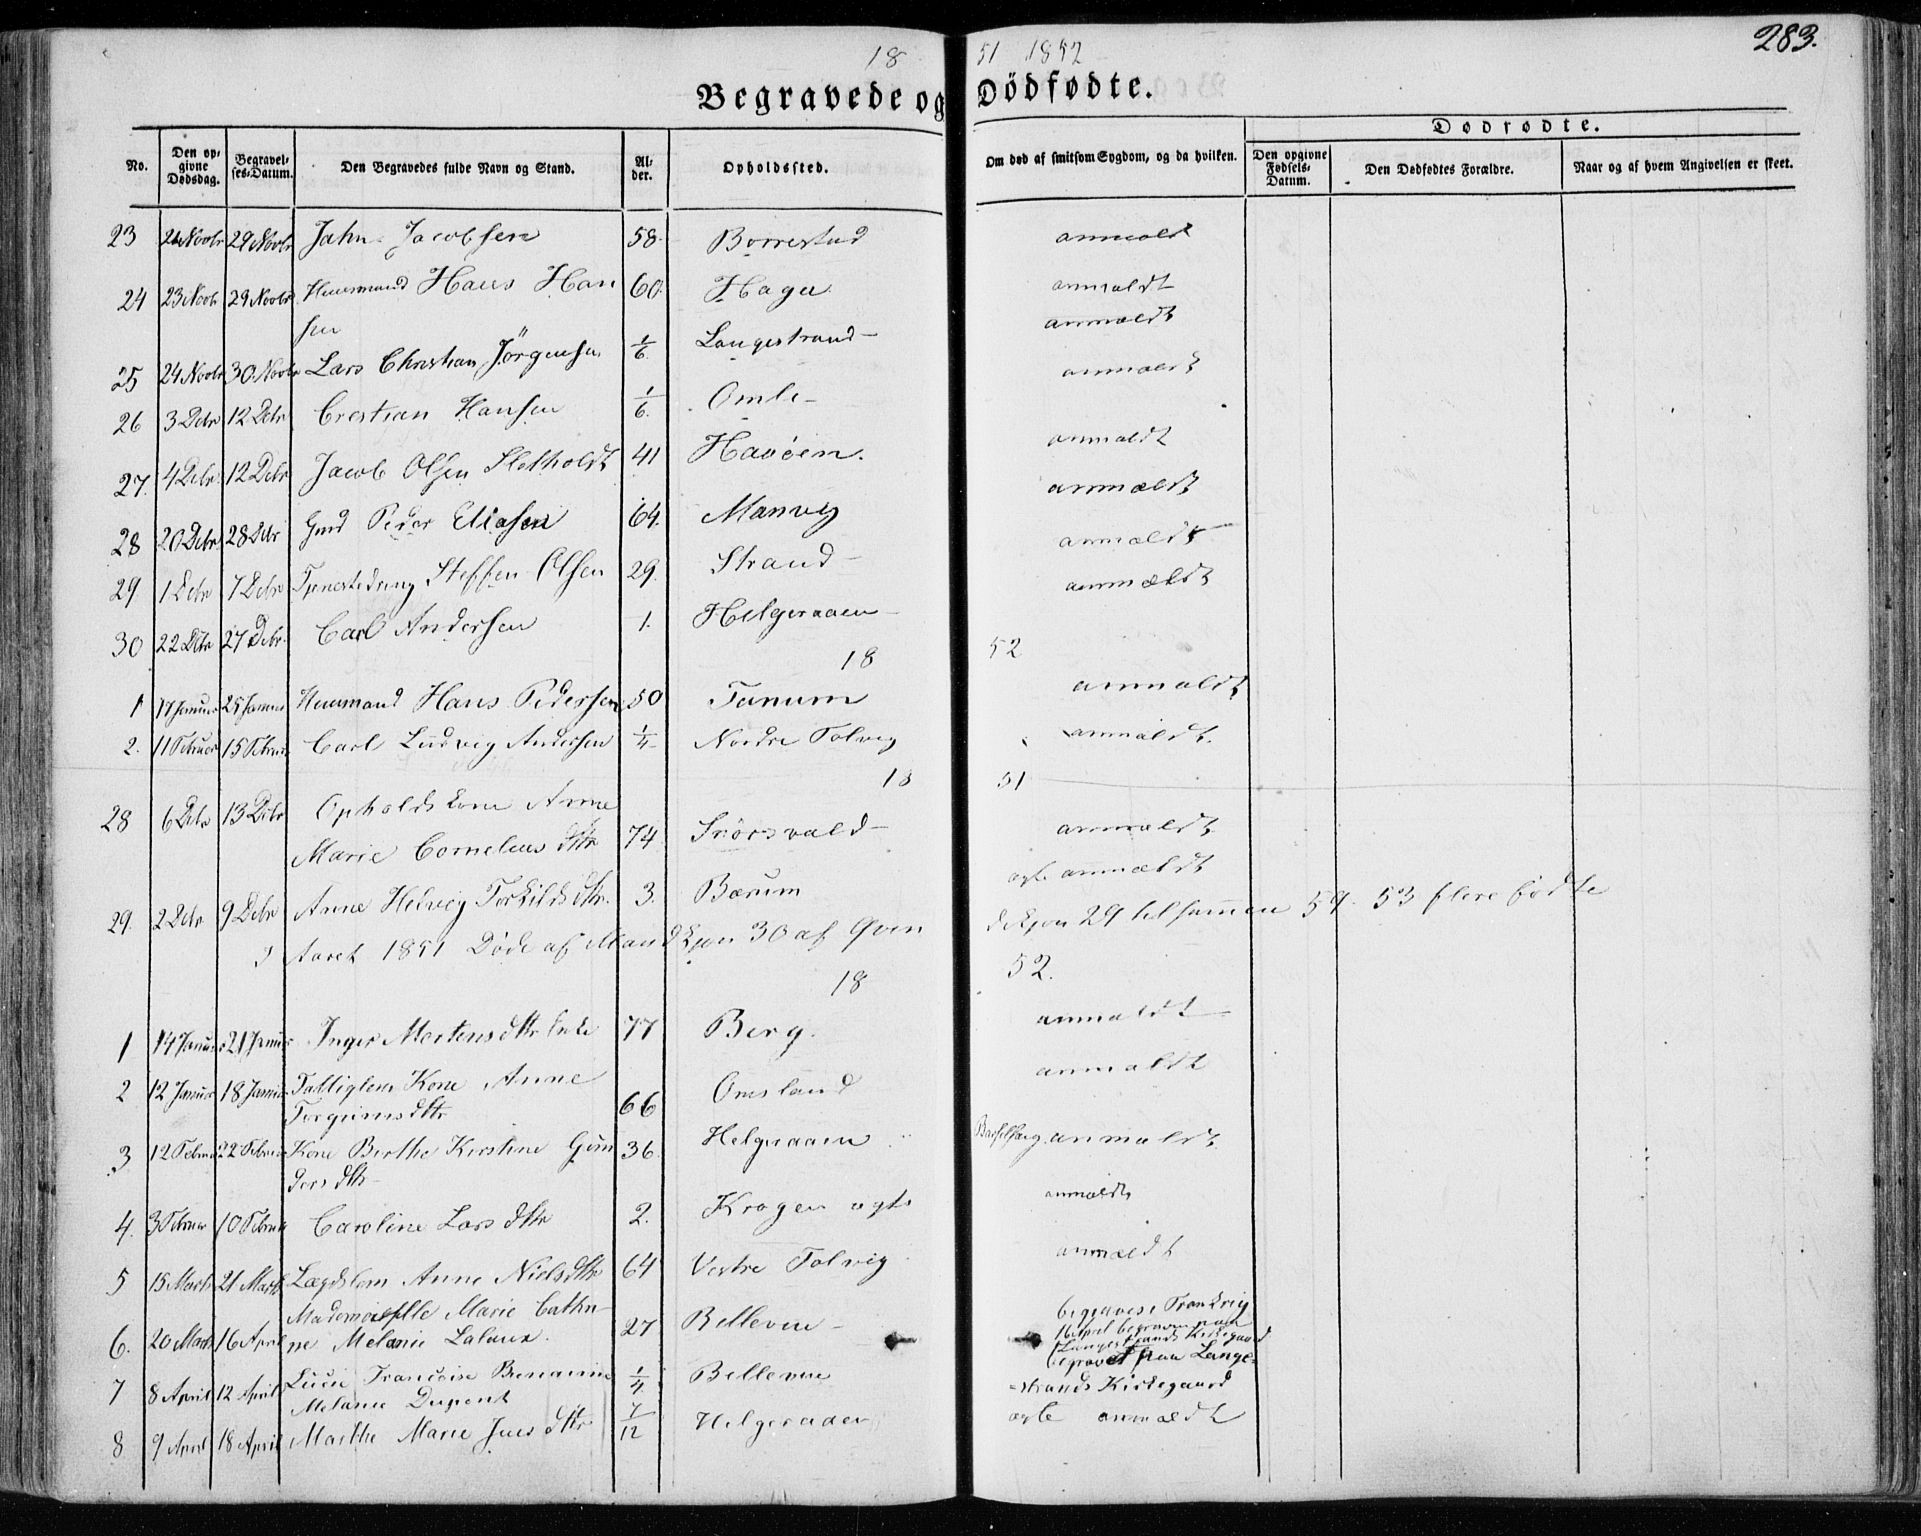 283.
18 51 1852
Begravede og Dödfødte.
Dødfødte.
No. Den opgivne Dødsdag. Begravelses-Datum. Den Begravedes fulde Navn og Stand. Alder. Opholdssted. Om død af smitsom Sygdom, og da hvilken. Den opgivne Fødsels-Datum. Den Dødfødtes Forældre. Naar og af hvem Angivelsen er skeet.
23 Novbr 29 Novbr Jahn Jacobsen 58. Borrestad anmeldt
24 23 Novbr 29 Novbr Huusmand Hans Han 60. Hagen anmældt
sen
25 24 Novbr 30 Novbr Lars Christian Jörgensen 1/6. Langestrand anmældt
26 3 Debr 12 Debr Crestian Hansen 1/6. Omle anmældt
27. 4 Debr 12 Debr Jacob Olsen Sletholdt 41 Havöen. anmældt
28 20 Debr 28 Debr Gmd Peder Eliasen 64. Manvig anmældt
29 1 Debr 7 Debr Tjenestedreng Steffen Olsen 29. Strand anmældt
30 22 Debr 27 Debr Carl Andersen 1. Helgeraaen anmældt
18 52
1 17 Januar 25 Januar Huusmand Hans Pedersen 50 Tanum anmældt
2. 11 Februar 15 Februar Carl Ludvig Andersen 1/4 Nordre Tolvig anmældt.
18 51
28 6 Debr 13 Debr Opholdskone Anne
Marie Cornelius dttr 74 anmældt
29. 2 Debr 9 Debr Anne Helvig Torkilds dtr. 3. Bærum ægte anmældt
I Aaret 1851 Døde af Mandkjøn 30 af Qvin dekjøn 29 tilsammen 59. 53 flere fødte
18 52.
1 14 Januar 21 Januar Inger Mortens dttr Enke 77 Berg. anmældt
2 12 Januar 18 Januar Fattiglem Kone Anne
Torgrims dttr 66 Omsland anmældt
3 12 Februar 22 Februar Kone Berthe Kirstine Gun 36 Helgeraaen Barselseng. anmældt
ders dttr
4. 3 Februar 10 Februar Caroline Lars dttr 2. Krogen ægte anmældt
5 15 Marts 21 Marts Lægdslem Anne Niels dttr 64 Vestre Tolvig anmældt
6. 20 Marts 16 April Mademoiselle Marie Cathri
ne Melanie 27 Bellevue begraves i Frankrig
16 April begraven paa
Langestrands Kirkegaard
7 8 April 12 April Lucie Francoise Benamine 1/4 Bellevue begravet paa Lange-
Melanie Dupont strands Kirkegaard
8 9 April 18 April Marthe Marie Jens dttr 7/12 Helgeraaen ægte anmældt